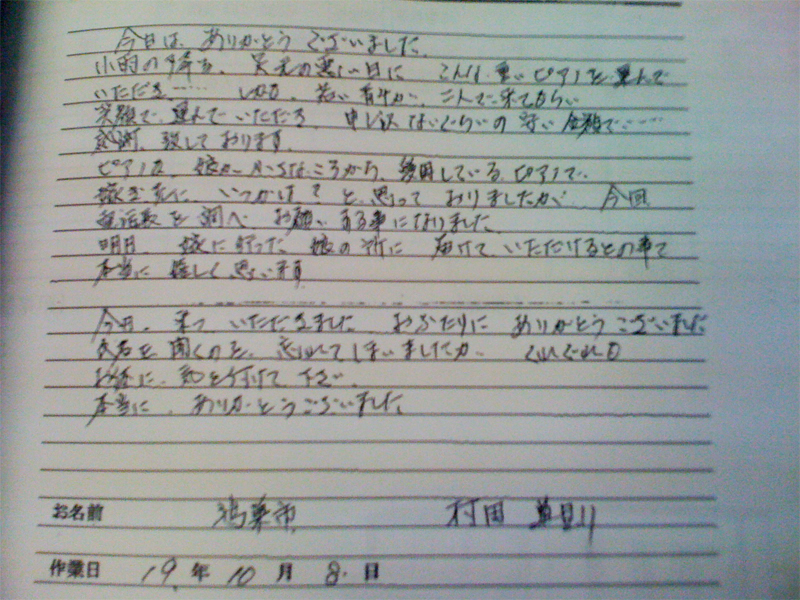 今日は、ありがとう ございました。
小雨の降る、天気の悪い日に こんな 重い ピアノを 運んで
いただき…… しかも、若い 青年が、二人で 来てもらい
笑顔で、運んで いただき、申し訳 ないぐらいの 安い 金額で……
感謝、致して おります。
ピアノは、娘が 小さな ころから、愛用している ピアノで、
いつかは? と、思って おりましたが、今回
電話帳を 調べ お願い する事に なりました。
明日、嫁に 行った 娘の 所に 届けて、いただけるとの事で
本当に 嬉しく 思います
今日、来て いただきました おふたりに ありがとう ございました
氏名を 聞くのを、忘れて しまいましたが、くれぐれも
お体に、気を付けて 下さい。
本当に、ありがとうございました
お名前 鴻巣市 村田
作業日 19. 年 10 月 8. 日